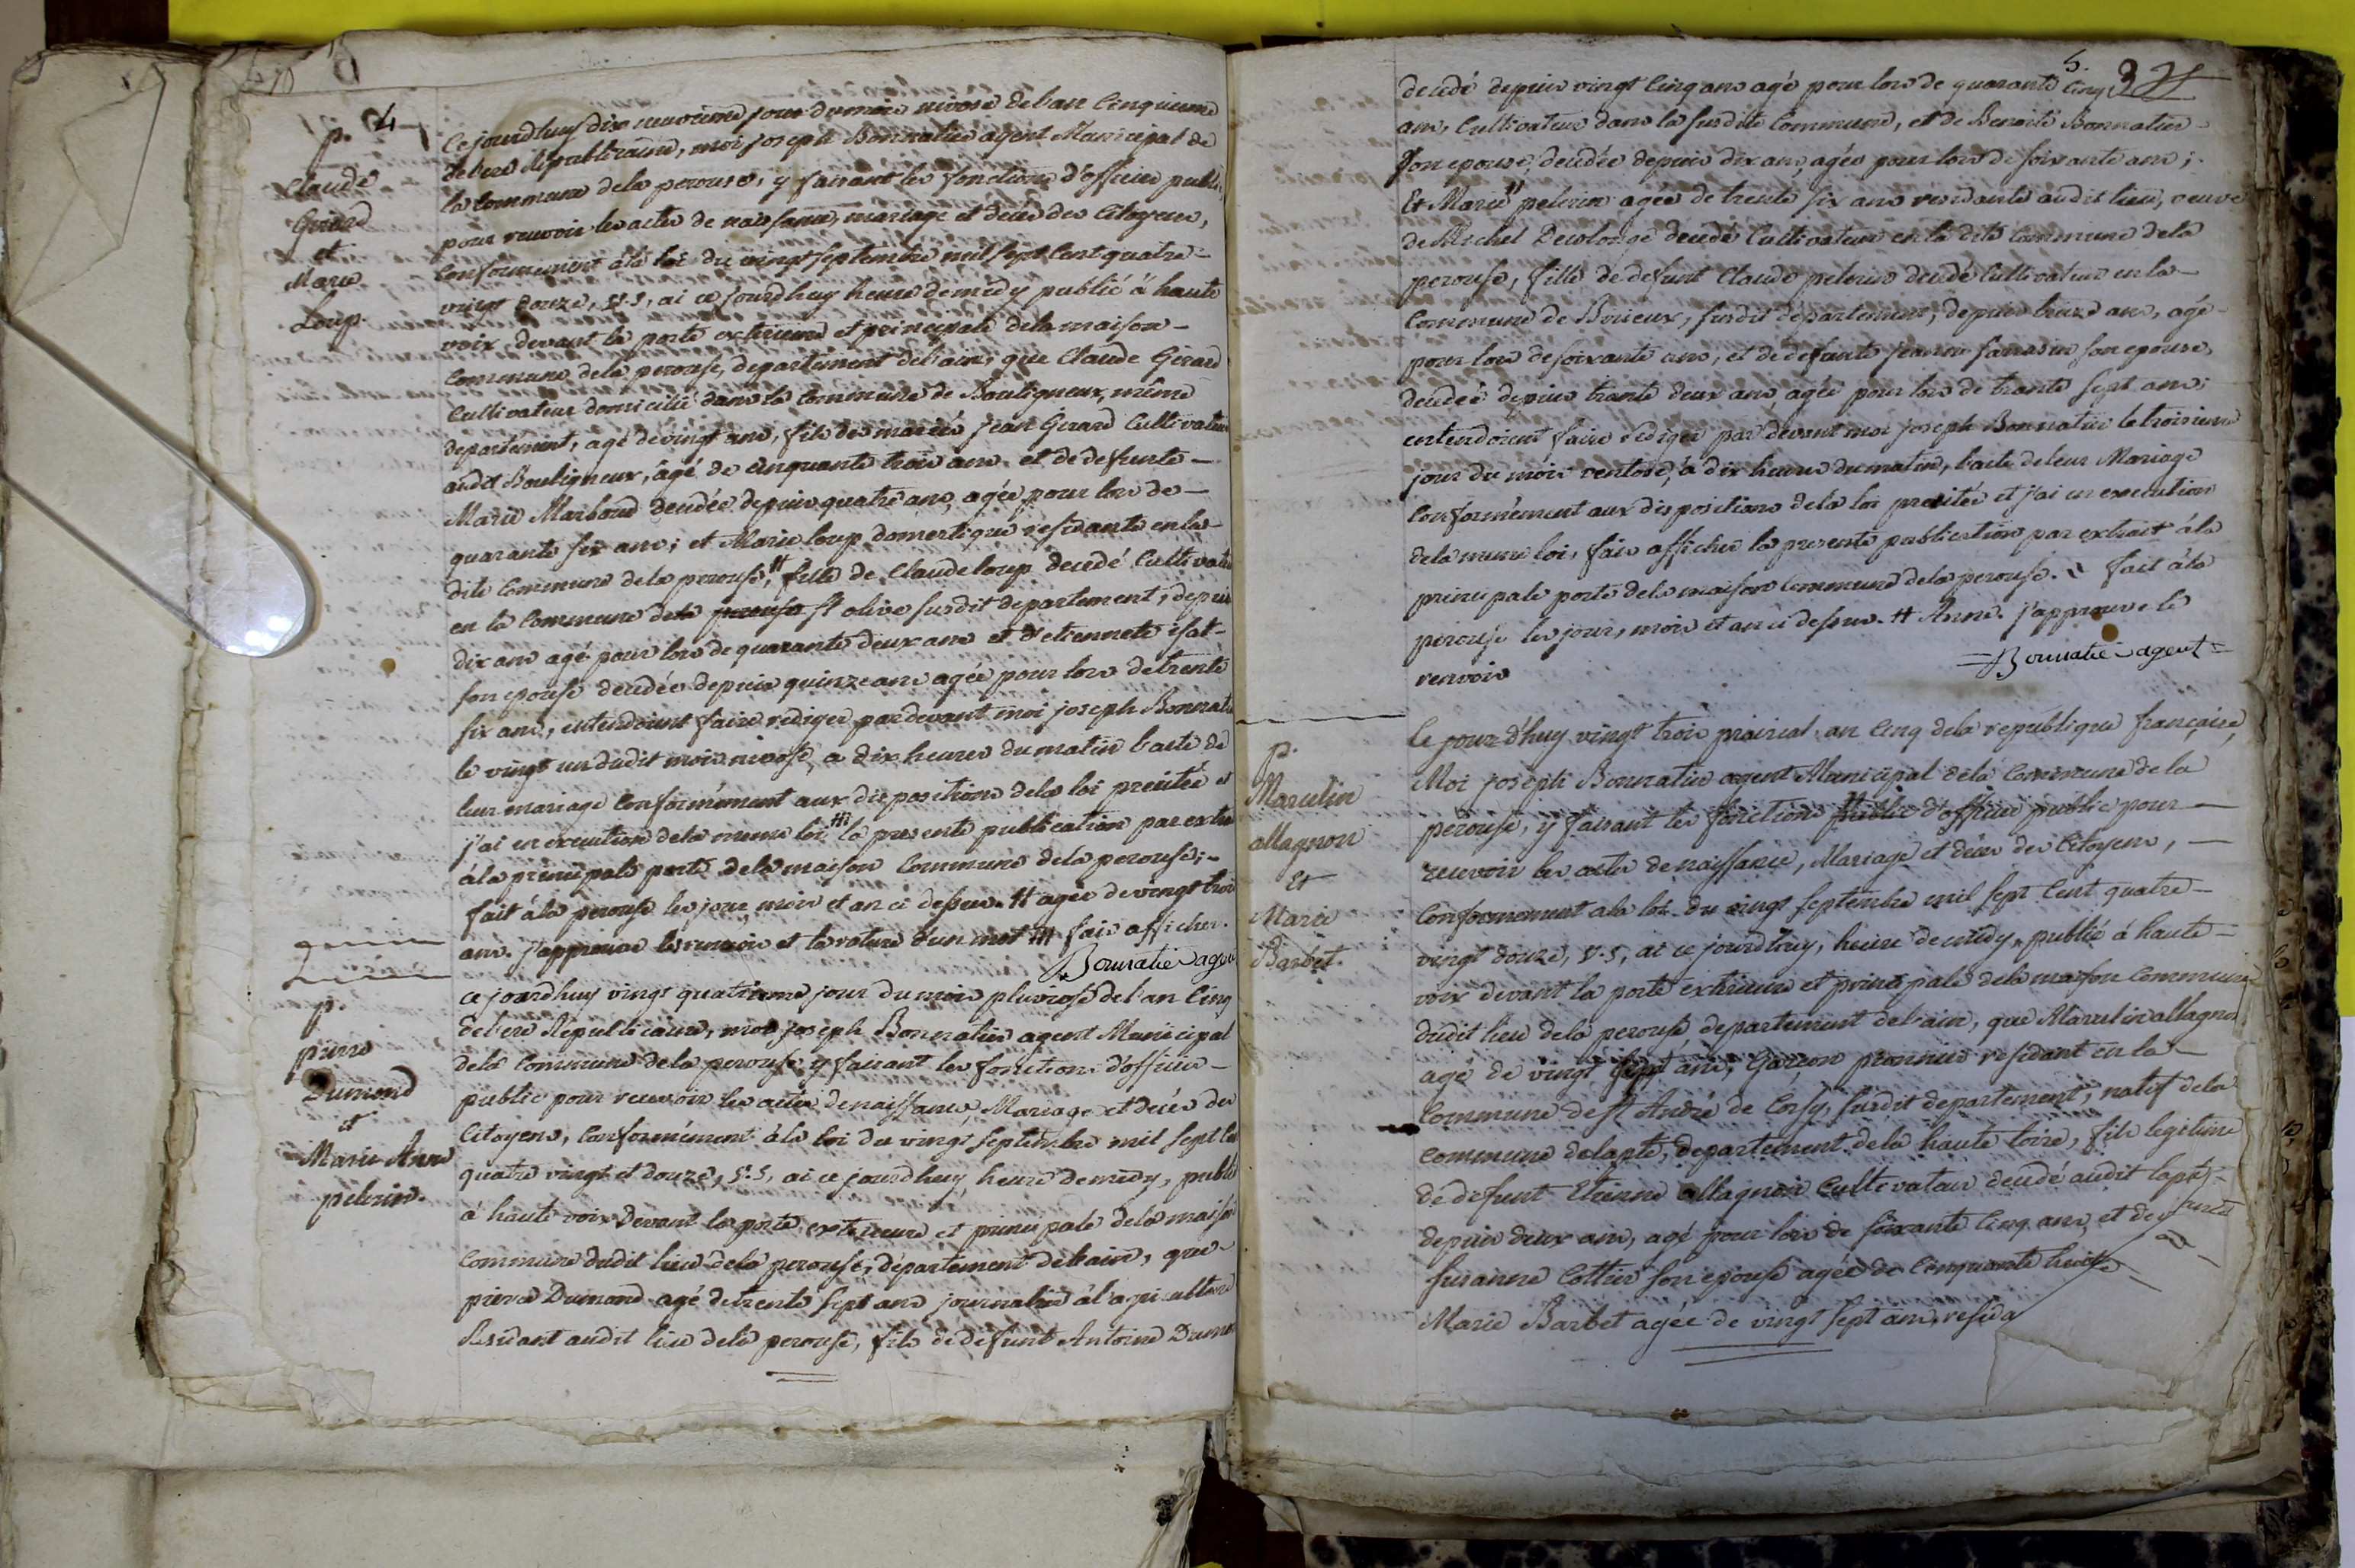 p. 4
Claude
Girard
et
Marie
Loup.
Cejourdhuy dix neuvieme jour du mois nivose de l'an Cinquieme
de l'ere Republicaine, moi joseph Bonnatier agent Municipal de
la Commune dela perouse, y faisant les fonctions d'officier public,
pour recevoir les actes de naissance, mariage et décès des Citoyens,
Conformement à la loi du vingt septembre mil sept Cent quatre-
vingt douze, V.S, ai ce jourdhuy heure de midy publié à haute
voix devant la porte exterieure et principale dela maison-
Commune dela perouse, departement de l'ain, que Claude Gerard
Cultivateur domicilié dans la Commune de Bouligneux, même
departement, agé de vingt ans, fils des mariés jean Gerard Cultivateur
audit Bouligneux, âgé de Cinquante trois ans et de defunte-
Marie Marboud decédée depuis quatre ans, agée pour lors de-
quarante six ans; et Marie loup domestique residante en la-
dite Commune dela perouse, # fille de Claude loup decédé Cultivateur
en la Commune dela perouse St olive susdit departement, depuis
dix ans agé pour lors de quarante deux ans et d'etiennete isat-
son epouse decédée depuis quinze ans agée pour lors de trente
six ans, entendoient faire rediger pardevant moi joseph Bonnatier
le vingt un dudit mois nivose, a dix heures du matin l'acte de
leur mariage Conformément aux dispositions dela loi precitée et
j'ai en execution dela meme loi ⧻ la presente publication par extrait
à la principale porte dela maison Commune dela perouse;-
fait à la perouse les jour, mois et an ci dessus. # agée de vingt trois
ans. j'approuve les renvois et la rature d'un mot ⧻ fais afficher.
Bounatier agent
p.
pierre
Dumond
et
Marie Anne
pelerin.
ce jourdhuy vingt quatrieme jour du mois pluviose de l'an Cinq
de l'ere Republicaine, moi joseph Bonnatier agent Municipal
dela Commune dela perouse y faisant les fonctions d'officier-
public pour recevoir les actes de naissance, Mariage et décès des
Citoyens, Conformément à la loi du vingt septembre mil sept Cent
quatre vingt et douze, V.S, ai ce jourdhuy heure de midy, publié
à haute voix Devant la porte exterieure et principale dela maison
Commune dudit lieu dela perouse, département de l'ain, que-
pierre Dumond agé de trente sept ans journalier à l'agriculture
Residant audit lieu dela perouse, fils de defunt Antoine Dumond
5.
decédé depuis vingt Cinq ans agé pour lors de quarante Cinq
ans, Cultivateur dans la susdite Commune, et de Benoite Bonnatier-
son epouse, decédée depuis dix ans, agée pour lors de soixante ans;
Et Marie # pelerin agée de trente six ans residante audit lieu, veuve
de Michel Decolonge decédé Cultivateur en la dite Commune dela
perouse, fille de defunt Claude pelerin decédé Cultivateur en la-
Commune de Birieux, susdit departement, depuis treize ans, agé-
pour lors de soixante ans, et de defunte jeanne sarrasin son epouse,
decédée depuis trante deux ans, agée pour lors de trante sept ans;
entendoient faire rediger par devant moi joseph Bonnatier le troisieme
jour du mois ventose, à dix heures du matin, l'acte de leur Mariage
Conformément aux dispositions dela loi precitée et j'ai en execution
dela meme loi, fais afficher la presente publication par extrait à la
principale porte dela maison Commune dela perouse. fait à la
perouse les jour, mois et an ci dessus. # Anne. j'approuve le
renvois
Bounatier agent
p.
Marcelin
allagnon
Et
Marie
Barbet.
Ce jourd'huy vingt trois prairial an Cinq dela republique française,
Moi joseph Bonnatier agent Municipal dela Commune dela
perouse, y faisant les fonctions public d'officier public pour-
recevoir les actes de naissance, Mariage et décès des Citoyens,-
Conformement a la loi du vingt septembre mil sept Cent quatre-
vingt douze, V.S, ai ce jourdhuy, heure de midy, publié à haute-
voix devant la porte exterieure et principale dela maison Commune
dudit lieu dela perouse departement de l'ain, que Marcelin allagnon
agé de vingt sept ans, Garçon residant en la-
Commune de St André de Corcy, susdit departement, natif dela
Commune de lapte, departement dela haute loire, fils legitime
de defunt Etienne allagnon Cultivateur decédé audit lapte,-
depuis deux ans, agé pour lors de soixante Cinq ans, et de
susanne Cottier son epouse agée de Cinquante huit
Marie Barbet agée de vingt sept ans, resida